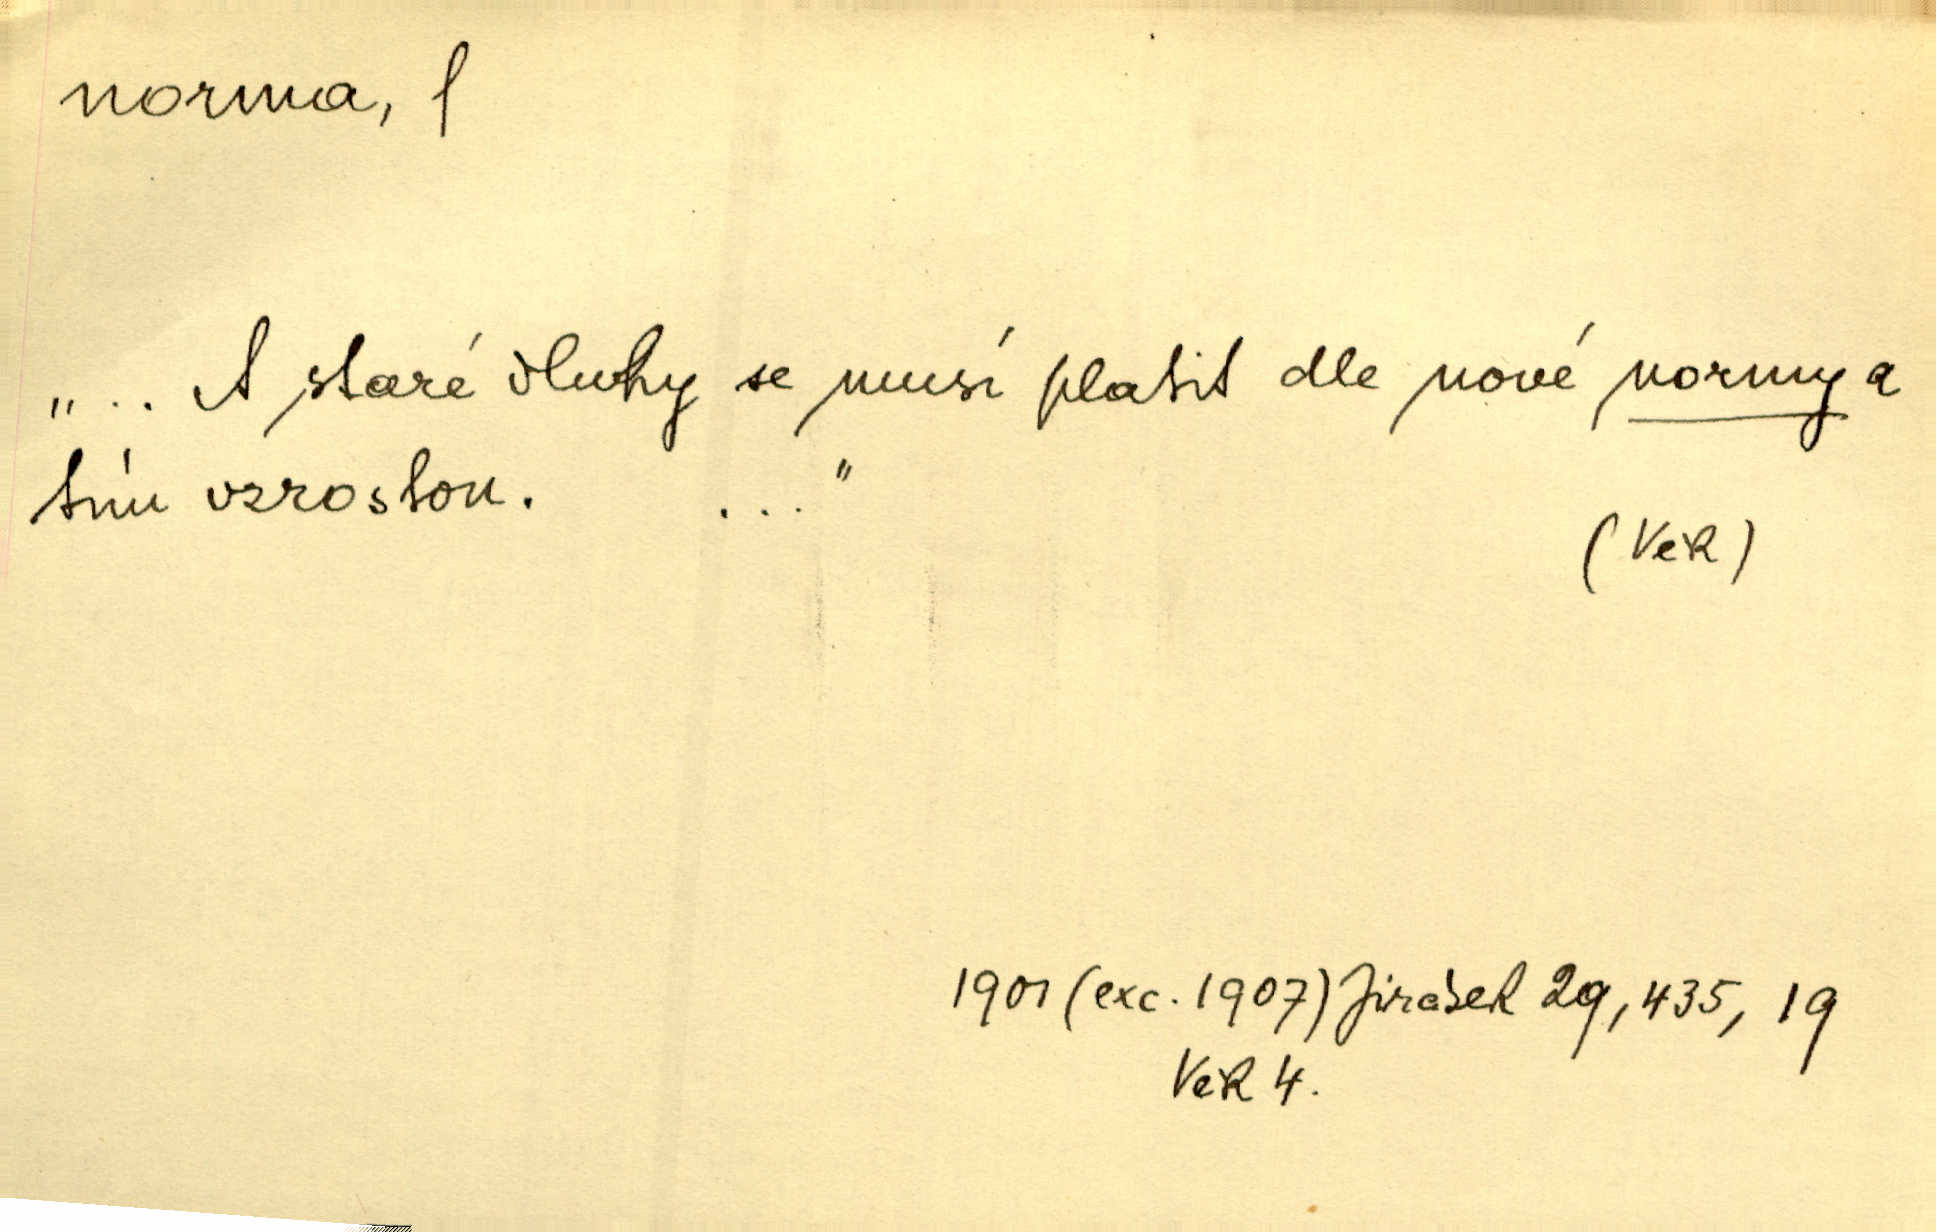 norma, f
„ .. A staré dluhy se musí platit dle nové normy a
tím vzrostou. ..."
(Věk)
1901 (exc. 1907) Jirásek 29, 435, 19
Věk 4.